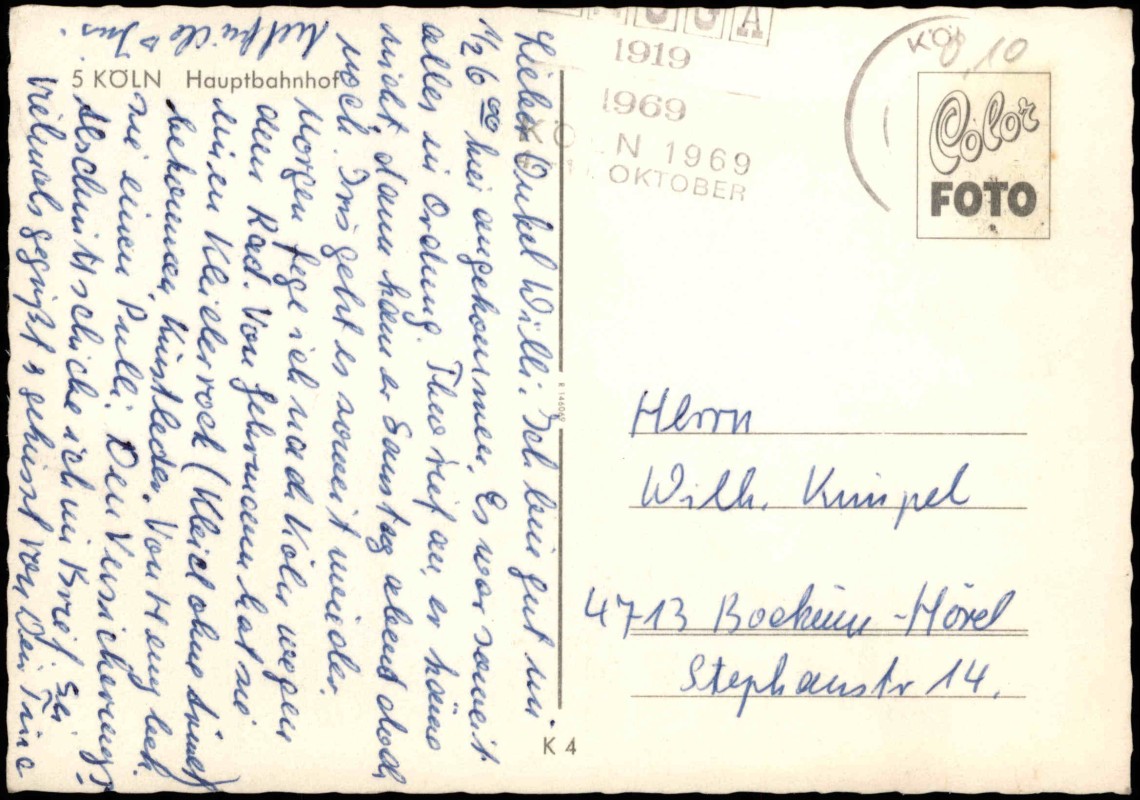 Lieber Onkel Willi. Ich bin gut um
1/2 6 00 hier angekommen. Es war soweit
alles in Ordnung. Theo rief an, er käme
nicht dann kam er Samstag abend doch
noch. Iris geht es soweit wieder.
Morgen fege ich nach Köln wegen
dem Rad. Von Gebrmann hat sie
einen Kleiderrock (Kleid ohne Ärmel)
bekommen, Kunstleder. Von Henny bek.
sie einen Pulli. Den Versicherungs-
abschnitt schicke ich im Brief. Sei
vielmals gegrüßt & geküsst von Dein Trine
5 KÖLN Hauptbahnhof
1919
1969
KÖLN 1969
OKTOBER
KÖL
0,10
Color
FOTO
K 4
Herrn
Wilh. Kimpel
4713 Bockum-Hövel
Stephanstr 14.